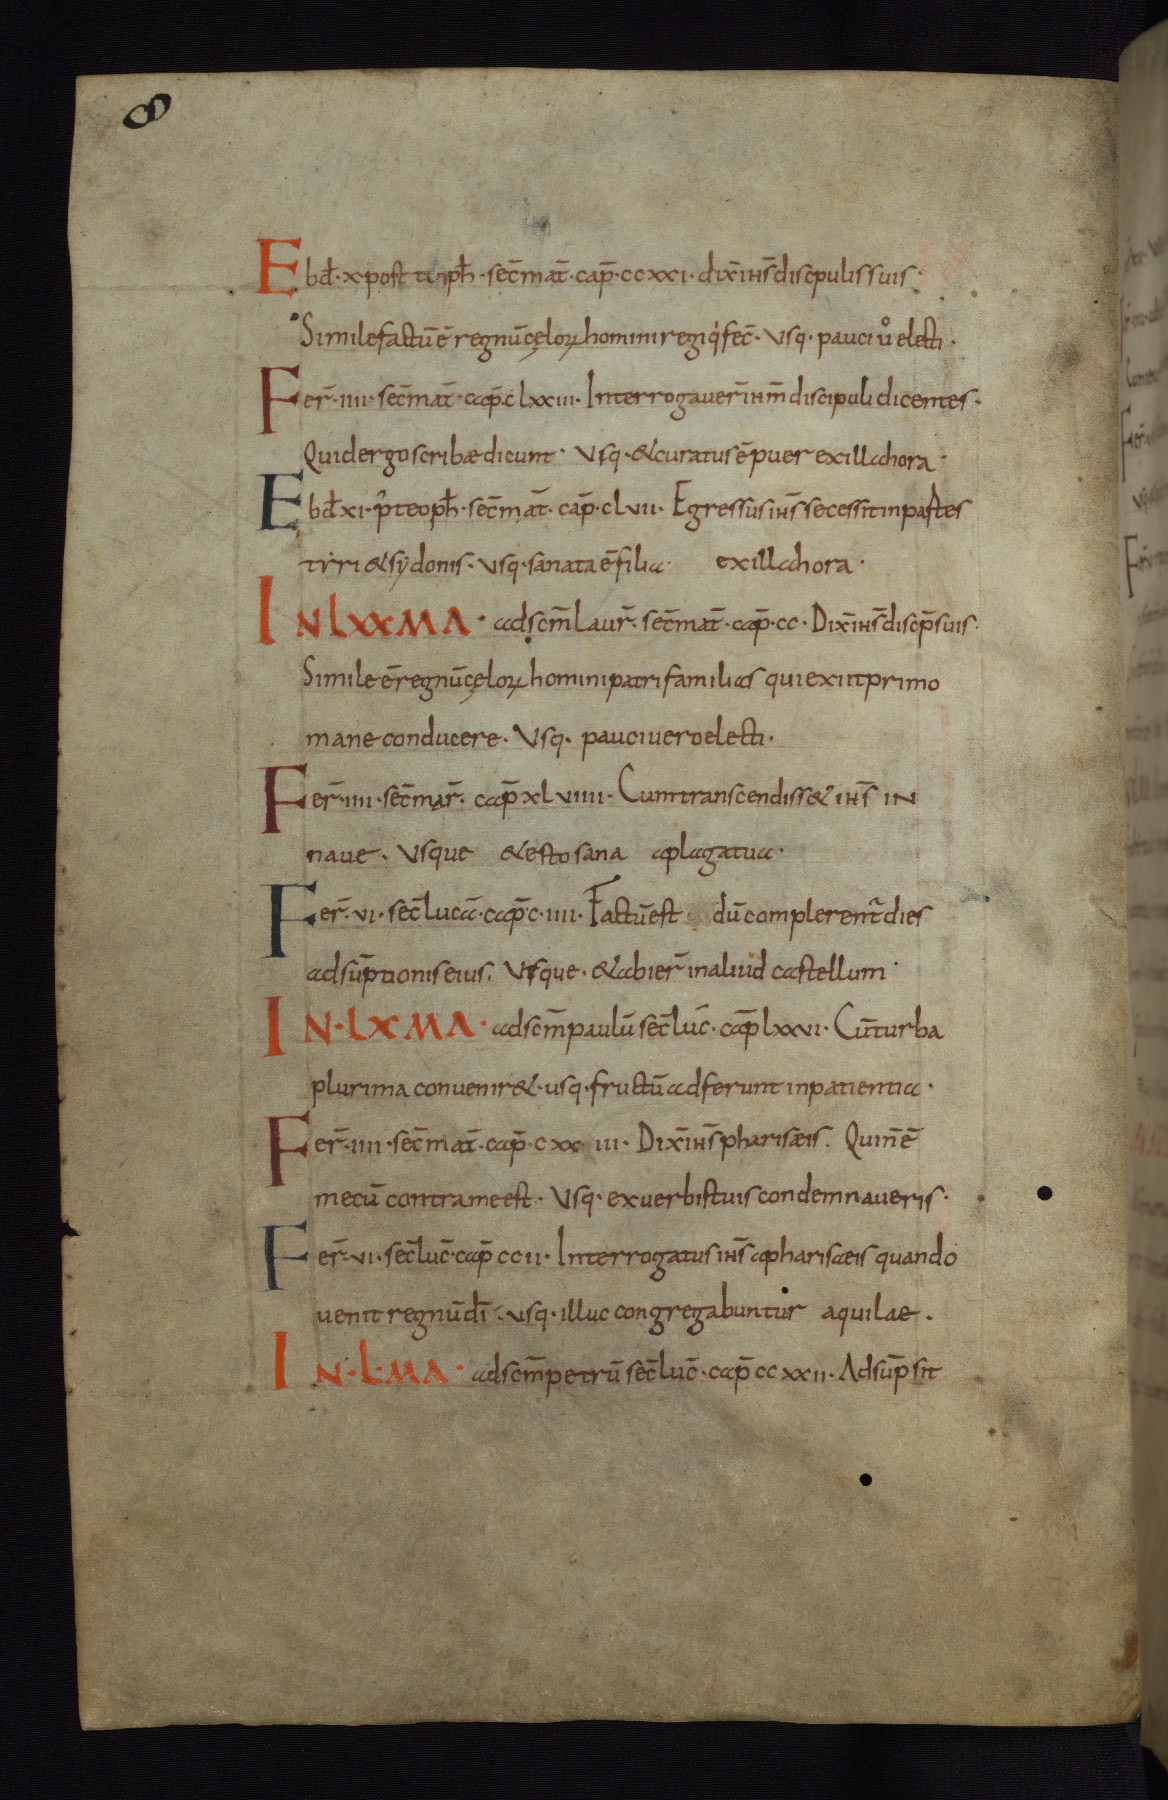 8
Ebd̄·x·post teoph̄·sec̄ mat̄·cap̄·ccxxi·dix̄ ihs̄ discipulis suis·
Simile factū ē regnū cęloꝝ homini regi q̇ fec̄·Usq·pauci u̇ electi·
Fer̄·iiii·sec̄ mat̄·cap̄·clxxiii·Interrogauer̄ ihm̄ discipuli dicentes·
Quid ergo scribæ dicunt·Usq·& curatus ē puer ex illa hora·
Ebd̄ xi·p̄ teoph̄·sec̄ mat̄·cap̄·clvii·Egressus ihs̄ secessit in partes
tyri & sydonis·Usq·sanata ē filia· ex illa hora·
IN LXXMA·ad scm̄ laur̄·sec̄ mat̄·cap̄·cc·Dix̄ ihs̄ discp̄ suis·
Simile ē regnū cęloꝝ homini patri familias qui exiit primo
mane conducere·Usq·pauci uero electi·
Fer̄·iiii·sec̄ mar̄·cap̄ xlviiii·Cum transcendiss& ihs̄ in
naue·Usque & esto sana a plaga tua·
Fer̄·vi·sec̄ lucā·cap̄·c·iiii·Factū est dū complerent̄ dies
adsūptionis eius·Usque·& abier̄ in aliud castellum·
IN·LXMA·ad scm̄ paulū sec̄ luc̄·cap̄ lxxvi·Cū turba
plurima conuenir&·usq·fructū adferunt in patientia·
Fer̄·iiii·sec̄ mat̄·cap̄·cxx iii·Dix̄ ihs̄ pharisæis·Qui n̄ ē
mecū contra me est·Usq·ex uerbis tuis condemnaueris·
Fer̄·vi·sec̄ luc̄·cap̄ ccii·Interrogatus ihs̄ a pharisæis quando
uenit regnū dī·usq·illuc congregabuntur aquilae·
IN·L·MA·ad scm̄ petrū sec̄ luc̄·cap̄ ccxxii·Adsūpsit